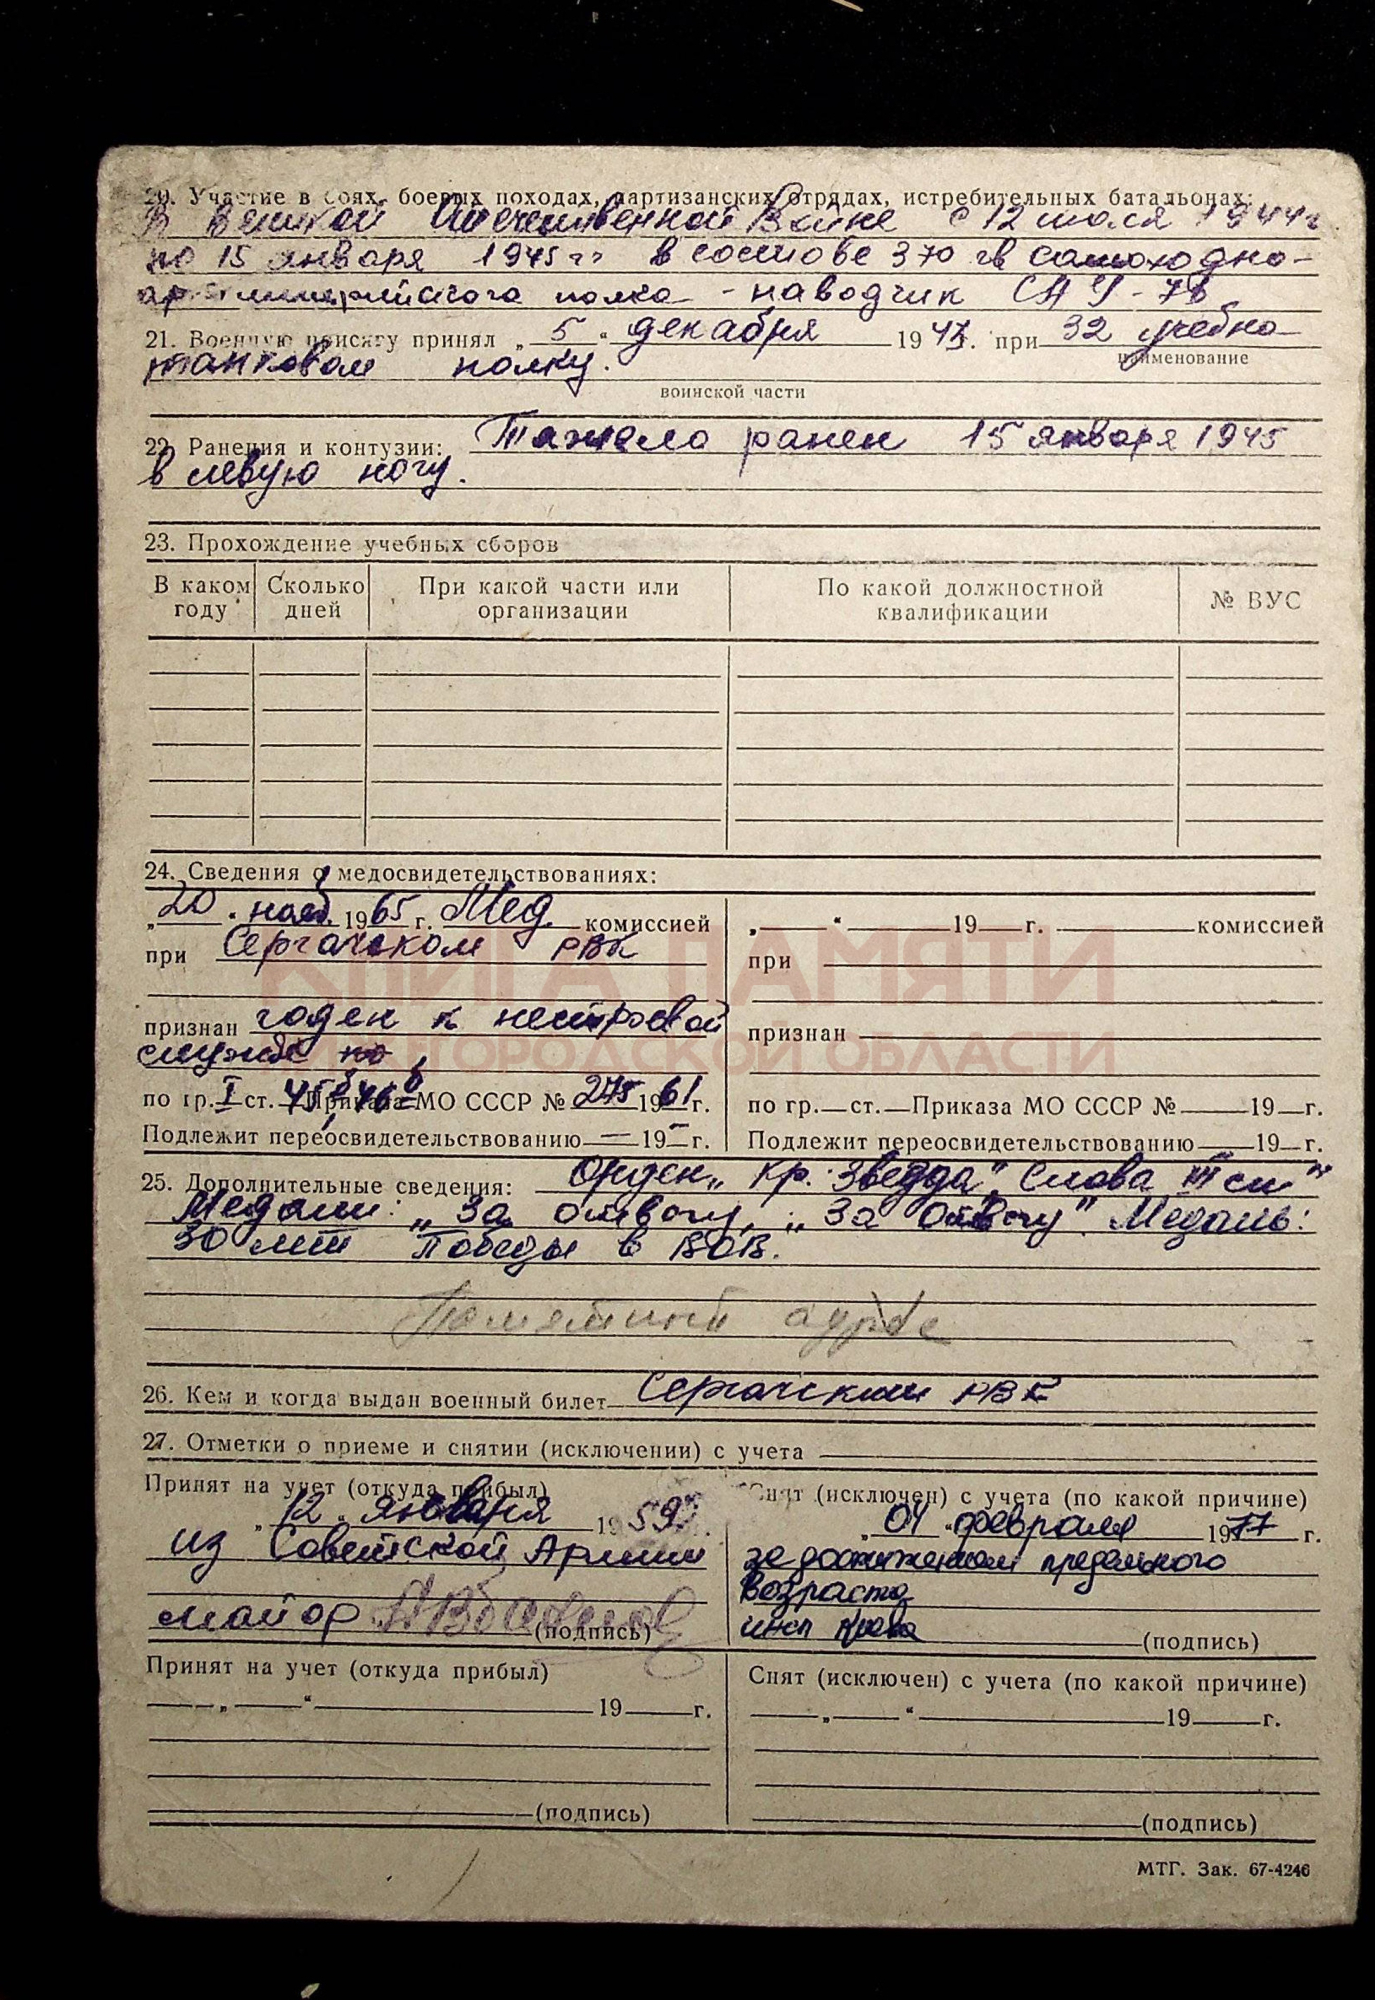 20. Участие в боях, боевых походах, партизанских отрядах, истребительных батальонах:
В Великой Отечественной Войне с 12 июля 1944г
по 15 января 1945 гг в составе 370 гв самоходно-
артиллерийского полка - наводчик САУ-76
21. Военную присягу принял „5“ декабря 1943г. при 32 учебно
наименование
танковом полку.
воинской части
22. Ранения и контузии: Тяжело ранен 15 января 1945
в левую ногу.
23. Прохождение учебных сборов
В каком году Сколько дней При какой части или организации По какой должностной квалификации № ВУС
24. Сведения о медосвидетельствованиях:
„20“ нояб. 1965 г. Мед. комиссией
при Сергачском РВК
признан годен к нестроевой
службе по
по гр. I ст. Приказа МО СССР № 275 1961 г.
Подлежит переосвидетельствованию — 19— г.
„ “ 19 г. комиссией
при
признан
по гр. ст. Приказа МО СССР № 19 г.
Подлежит переосвидетельствованию 19 г.
КНИГА ПАМЯТИ
НИЖЕГОРОДСКОЙ ОБЛАСТИ
25. Дополнительные сведения: Орден „Кр. Звезда“, Слава III ст“
Медали: „За отвагу, „За Отвагу“ Медаль:
30 лет Победы в ВОВ.
адрес
26. Кем и когда выдан военный билет Сергачским РВК
27. Отметки о приеме и снятии (исключении) с учета
Принят на учет (откуда прибыл)
„12“ января 1959 г.
из Советской Армии
майор
(подпись)
Снят (исключен) с учета (по какой причине)
„04“ февраля 1977 г.
за достижением предельного
возраста
инсп
(подпись)
Принят на учет (откуда прибыл)
„ “ 19 г.
(подпись)
Снят (исключен) с учета (по какой причине)
„ “ 19 г.
(подпись)
МТГ. Зак. 67-4246